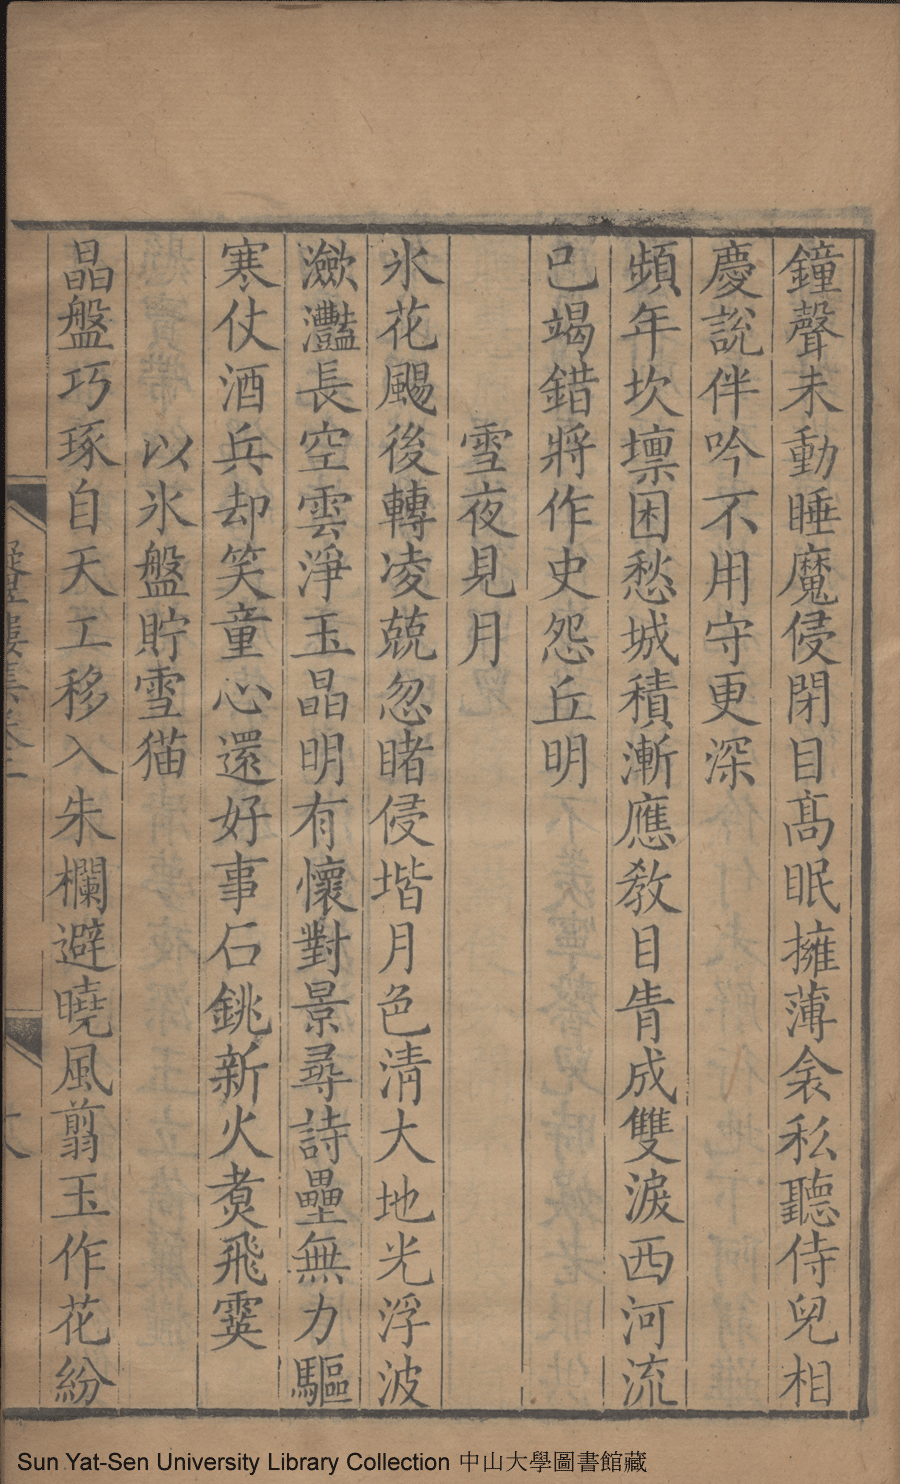 鐘聲未動睡魔侵閉目髙眠擁薄衾私聽侍兒相
慶說伴吟不用守更深
頻年坎壈困愁城積漸應教目眚成雙淚西河流
已竭錯將作史怨丘明
雪夜見月
氷花颺後轉凌兢忽睹侵堦月色清大地光浮波
瀲灩長空雲淨玉晶明有懷對景尋詩壘無力驅
寒仗酒兵却笑童心還好事石銚新火煑飛霙
以氷盤貯雪猫
晶盤巧琢自天工移入朱欄避曉風翦玉作花紛
Sun Yat-Sen University Library Collection 中山大學圖書館藏